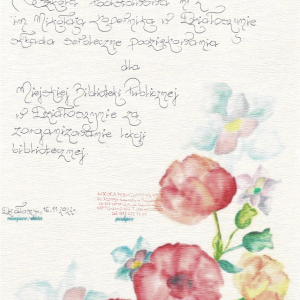 Szkoła Podstawowa nr 2
im Mikołaja Kopernika w Działoszynie
składa serdeczne podziękowania
dla
Miejskiej Biblioteki Publicznej
w Działoszynie za
zorganizowanie lekcji
bibliotecznej
Działoszyn, 16.11.2022r
miejscowość i data
podpis